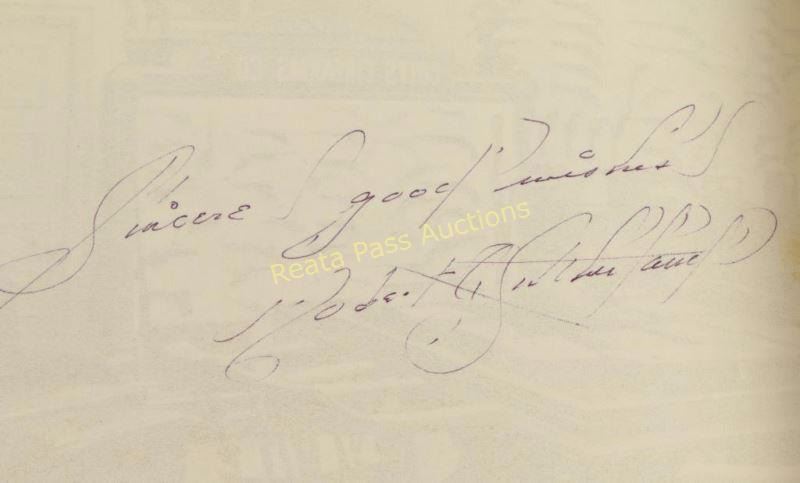 Sincere good wishes
Reata Pass Auctions
Robert